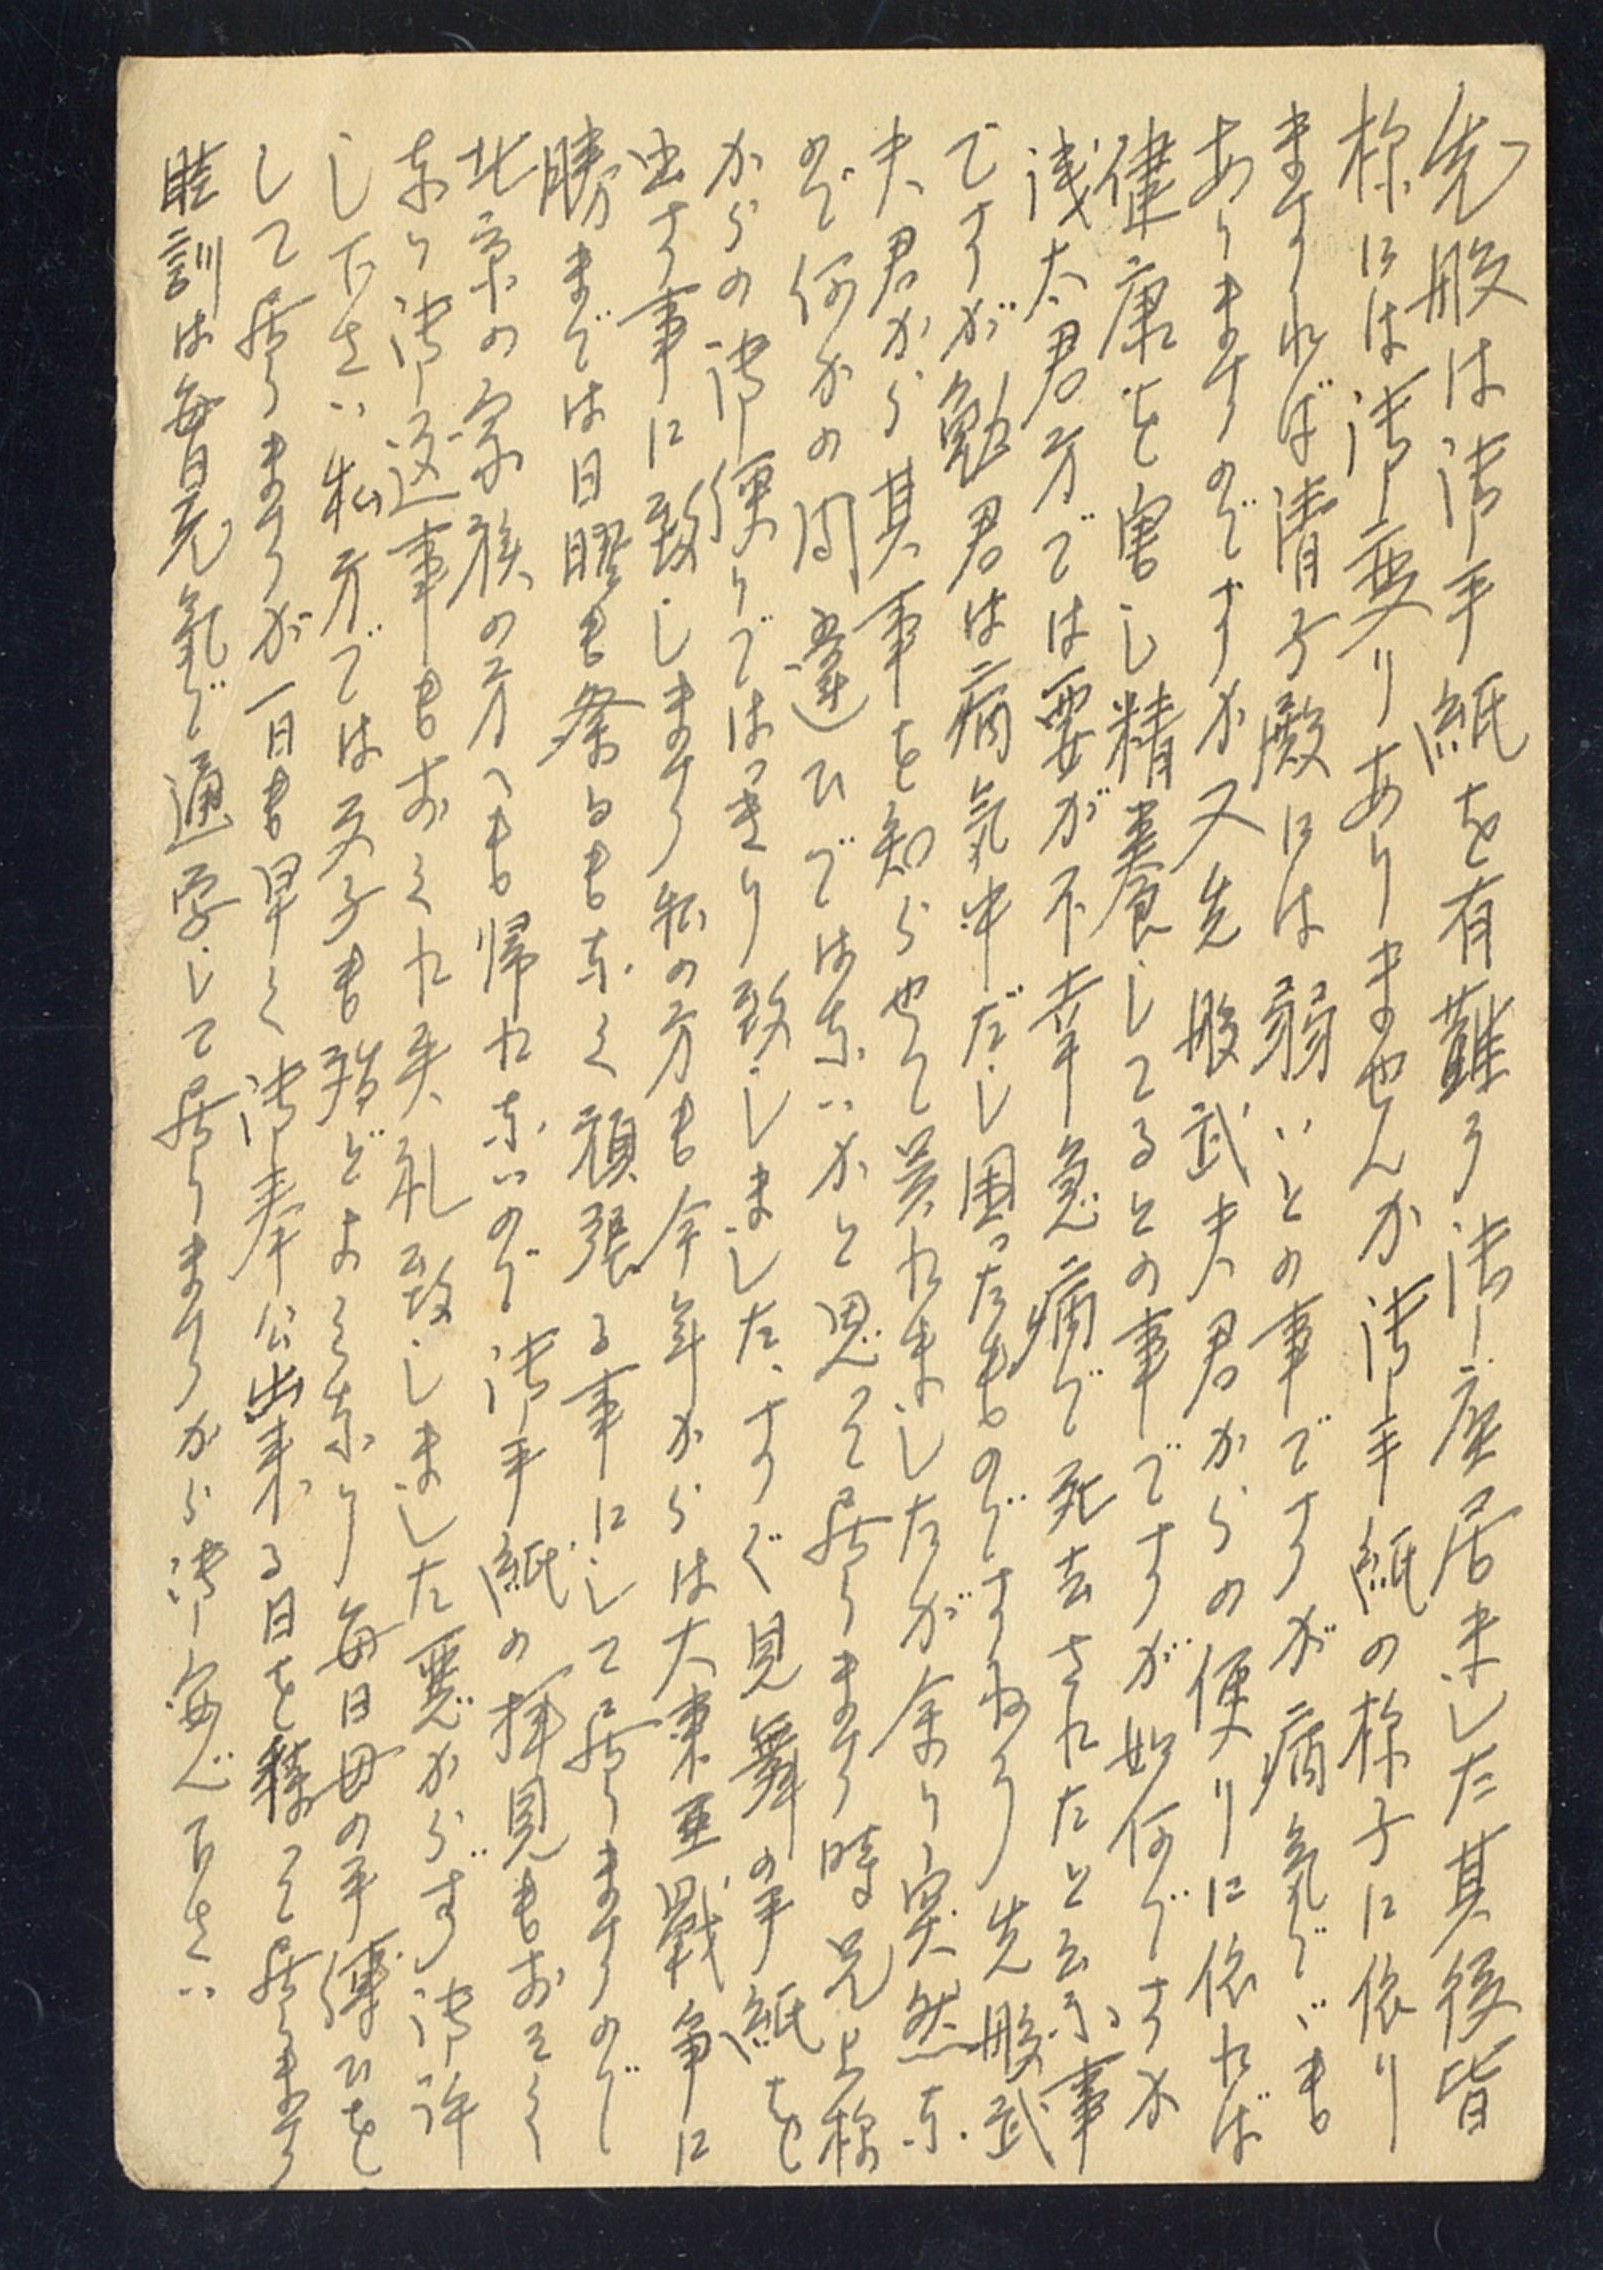 先般は御手紙を有難う御座居ました其後皆
様には御変りありませんか御手紙の様子に依り
ますれば清子殿には弱いとの事ですが病気でも
ありますのですか又先般武夫君からの便りに依れば
健康を害し精養してるとの事ですが如何ですか
浅太君方では要が不幸急病で死去されたと云ふ事
ですが勉君は病気中だし困ったものですねう先般武
夫君から其事を知らせて呉れましたが余り突然な
ので何かの間違ひではないかと思って居ります時兄上様
からの御便りではっきり致しました、すぐ見舞の手紙を
出す事に致します私の方も今年からは大東亜戦争に
勝までは日曜も祭日もなく頑張る事にして居りますので
北京の家族の方へも帰れないので御手紙の拝見もおそく
なり御返事もおくれ失礼致しました悪からず御許
し下さい私方では文子も殆どよくなり毎日母の手傳ひを
して居りますが一日も早く御奉公出来る日を待って居ります
睦訓は毎日元気で通学して居りますから御安心下さい